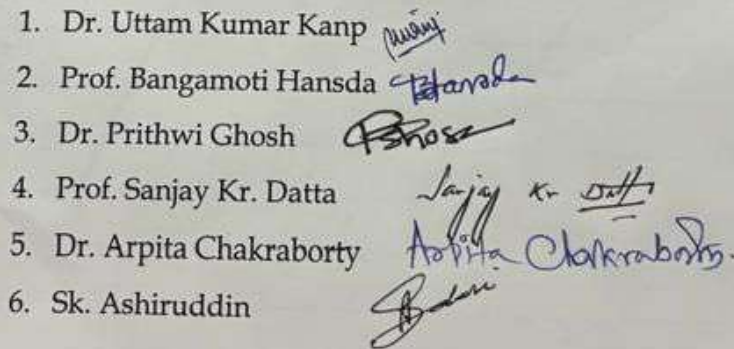 1. Dr. Uttam Kumar Kanp
2. Prof. Bangamoti Hansda Hansda
3. Dr. Prithwi Ghosh PGhosh
4. Prof. Sanjay Kr. Datta Sanjay Kr Datta
5. Dr. Arpita Chakraborty Arpita Chakraborty.
6. Sk. Ashiruddin